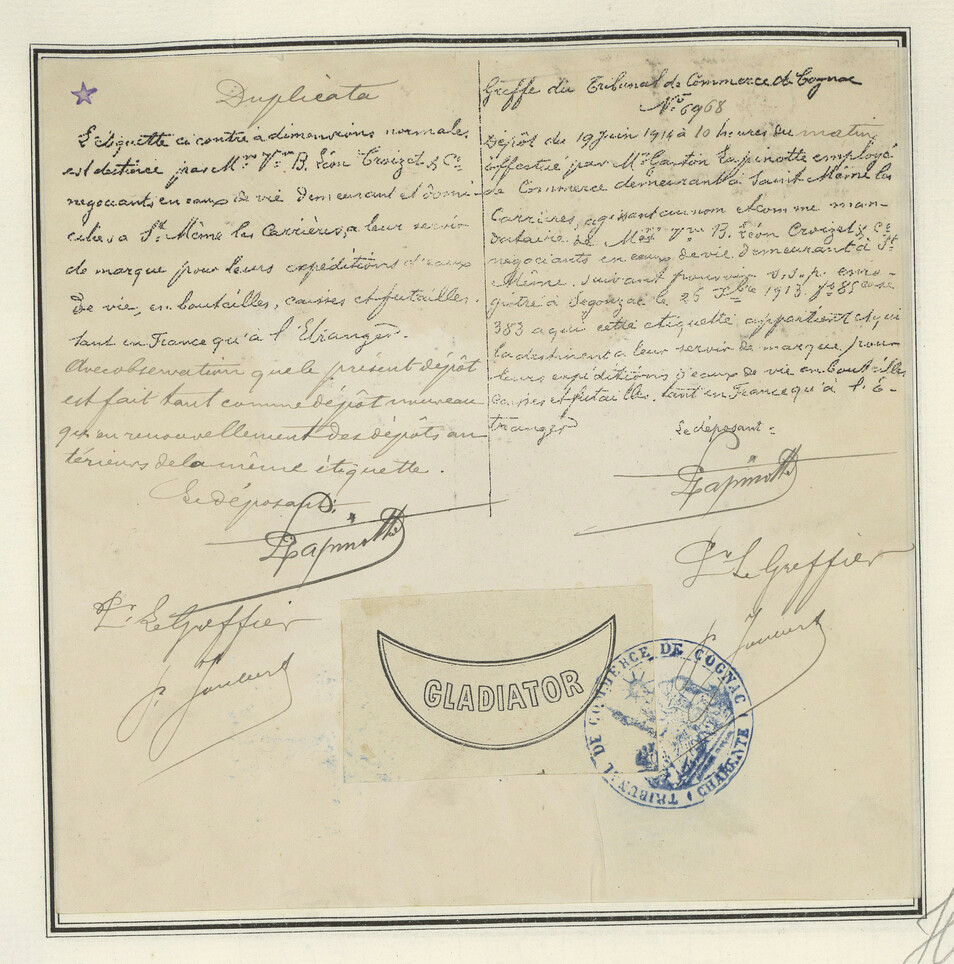 Duplicata
L'étiquette ci contre à dimensions normales
est destinée par Mrs Vve B. Léon Croizet & Cie
négociants en eaux de vie demeurant et domi-
ciliés à St Même les Carrières, a leur servir
de marque pour leurs expéditions d'eaux
de vie, en boutailles, caisses et futailles.
tant en France qu'à l'Etranger.
Avec observation que le présent dépôt
est fait tant comme dépôt nouveau
qu'en renouvellement des dépôts an
térieurs de la même étiquette.
Le déposant:
Lapinotte
Pr Le Greffier
Joubert
Greffe du Tribunal de Commerce de Cognac
No 6968
Dépôt du 19 Juin 1914 à 10 heures du matin,
effectué par Mr Gaston Lapinotte employé
de Commerce demeurant à Saint-Même les
Carrières, agissant au nom et comme man-
dataire de Mrs Vve B. Léon Croizet & Cie
négociants en eaux de vie demeurant à St
Même. suivant pouvoir s.s.p. enre-
gistré à Segonzac le 26 1913. fo 85 case
383 a qui cette étiquette appartient et qui
la destinent a leur servir de marque pour
leurs expéditions d'eaux de vie en bouteilles
caisses et futailles. tant en France qu'à l'E-
tranger
Le déposant:
Lapinotte
Pr Le Greffier
Joubert
GLADIATOR
TRIBUNAL DE COMMERCE DE COGNAC
CHARENTE